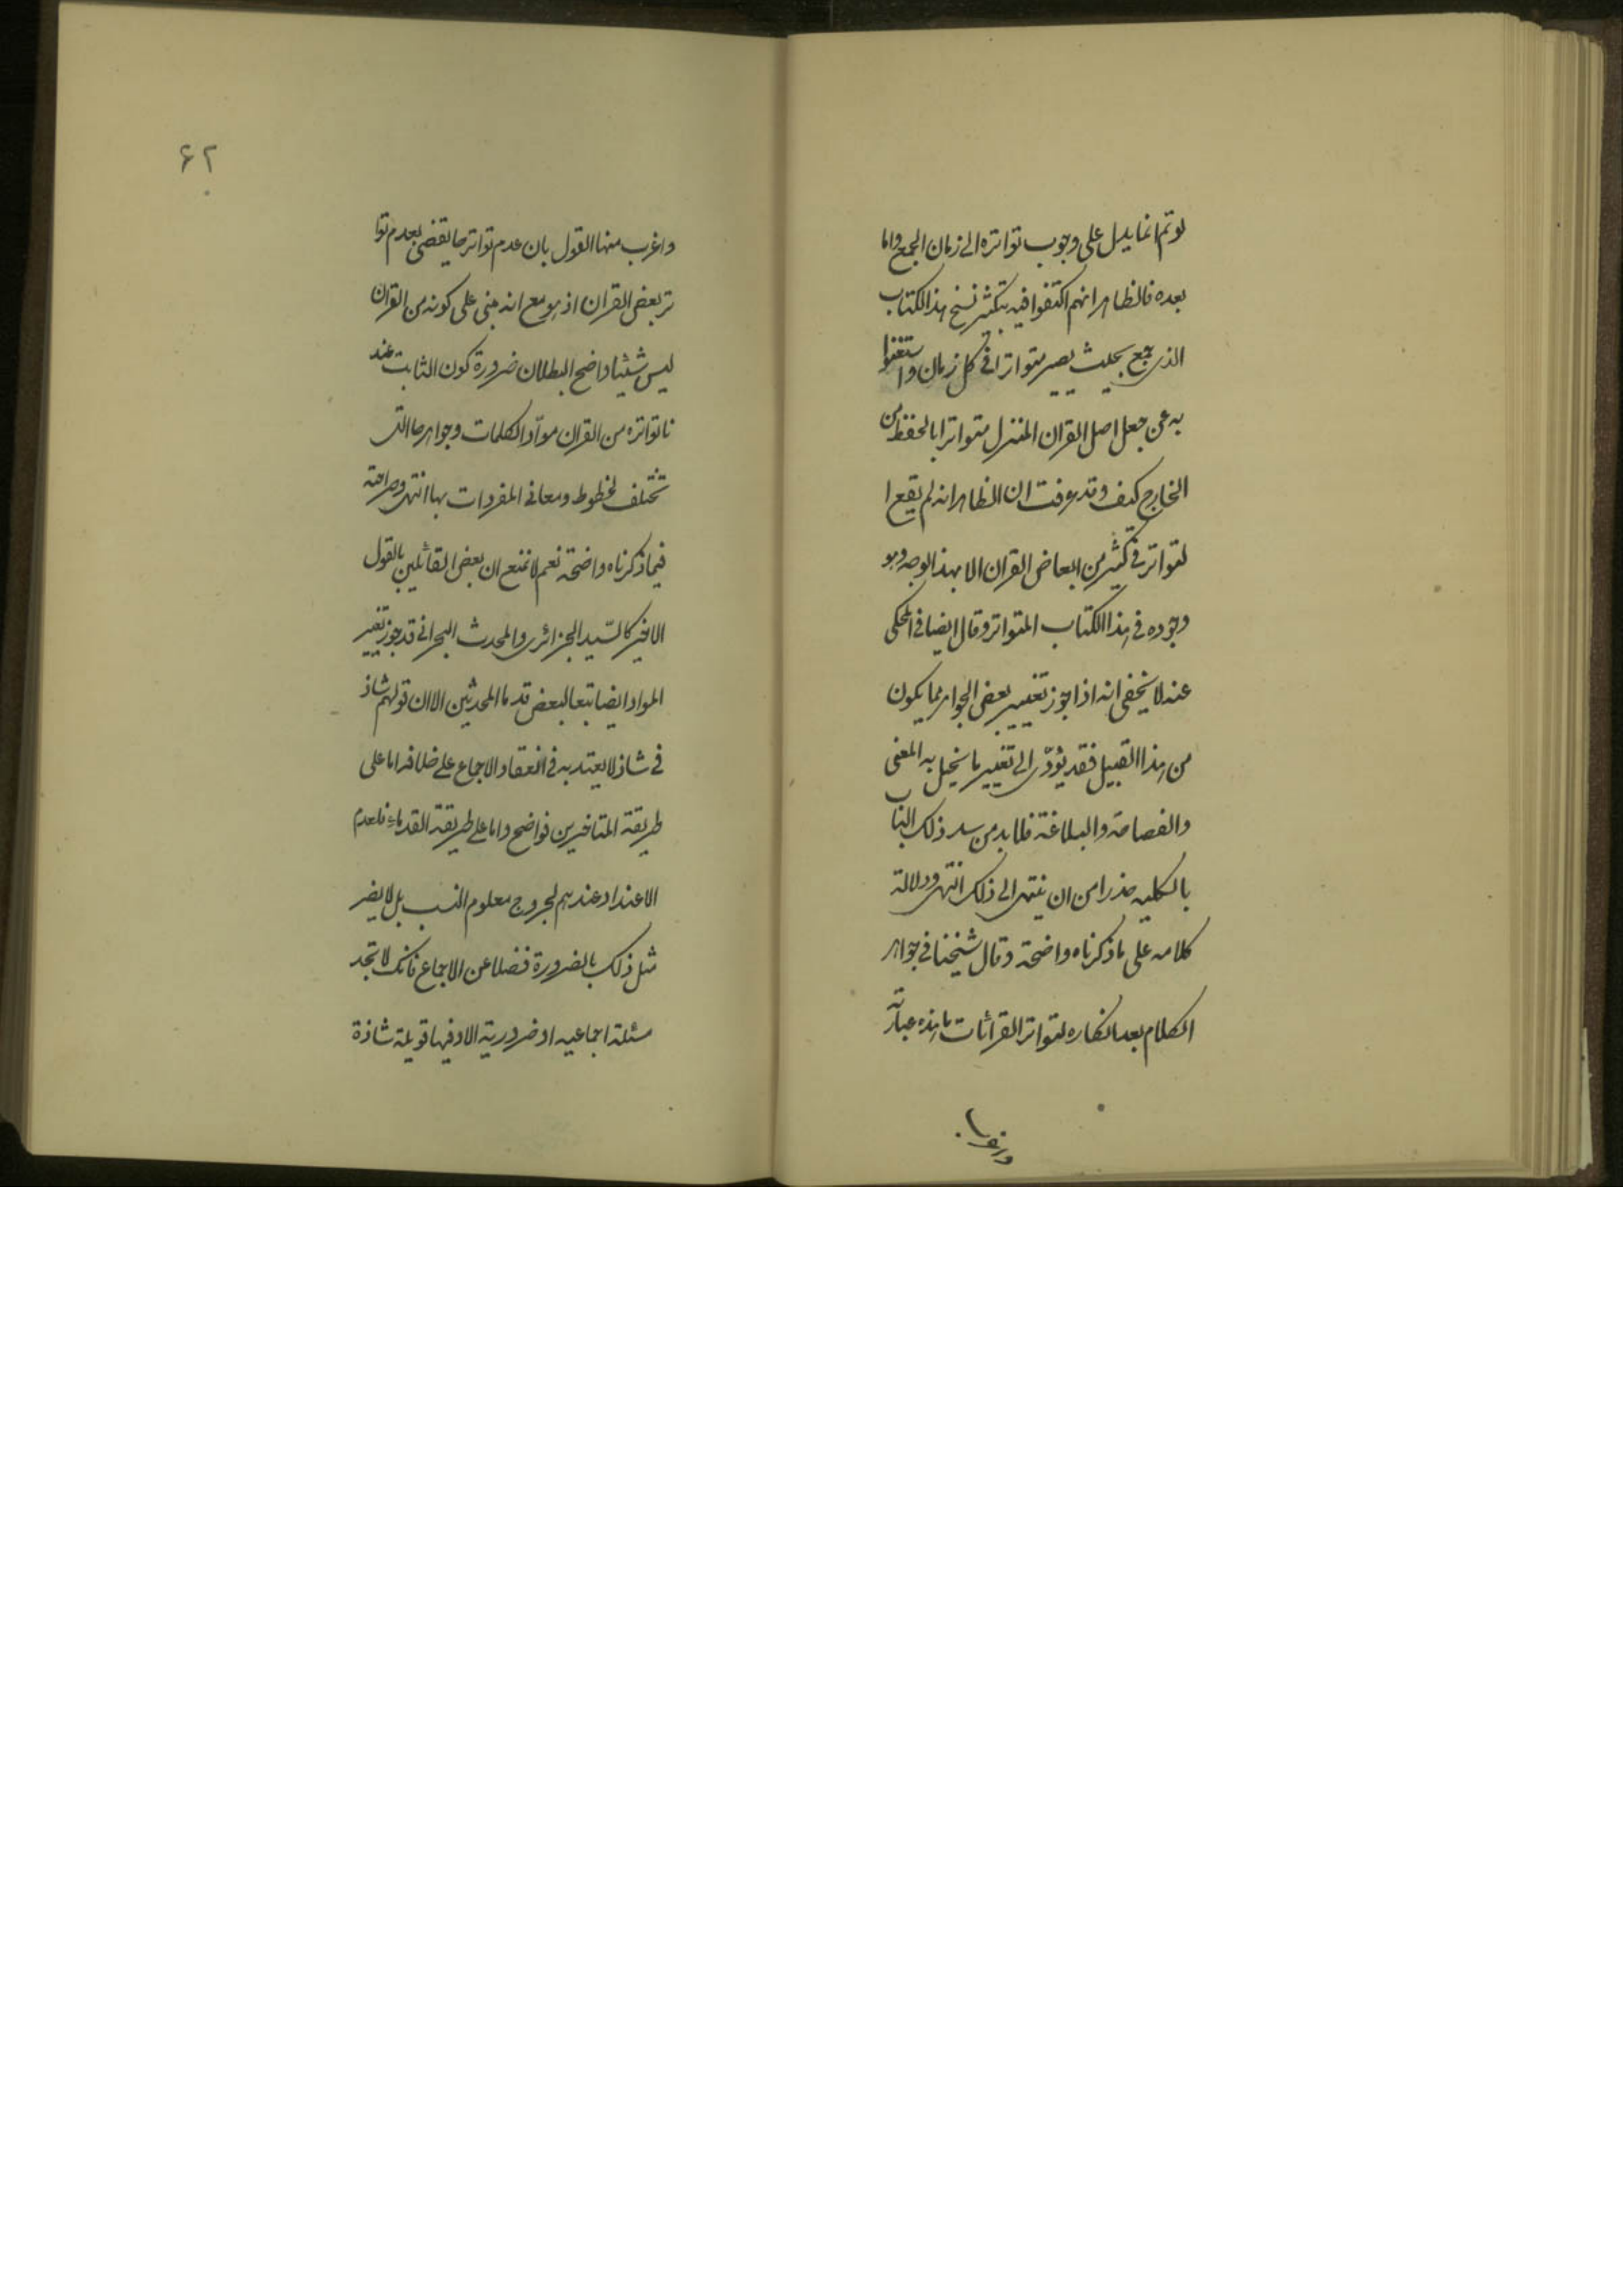 لو تم انما يدل على وجوب تواتره الى زمان الجمع واما
بعده فالظاهر انهم اكتفوا فيه بتكثير نسخ هذا الكتاب
الذى جمع بحيث يصير متواترا فى كل زمان واستغنوا
به عن جعل اصل القران المنزل متواترا بالحفظ من
الخارج كيف وقد عرفت ان الظاهر انه لم يقع ا
لتواتر فى كثير من ابعاض القران الا بهذا الوجه وهو
وجوده فى هذا الكتاب المتواتر وقال ايضا فى المحكى
عنه لا يخفى انه اذا جوز تغيير بعض الجواهر مما يكون
من هذا القبيل فقد يؤدّى الى تغيير ما يخل به المعنى
والفصاحة والبلاغة فلا بد من سد ذلك الباب
بالكليه حذرا من ان ينتهى الى ذلك انتهى ودلالة
كلامه على ما ذكرناه واضحة وقال شيخنا فى جواهر
الكلام بعد انكاره لتواتر القرائات ما هذه عبارته
واغرب
۶۲
واغرب منها القول بان عدم تواترها يقضى بعدم توا
تر بعض القران اذ هو مع انه مبنى على كونه من القران
ليس شيئا واضح البطلان ضرورة كون الثابت عند
نا تواتره من القران موادّ الكلمات وجواهرها التى
تختلف الخطوط ومعانى المفردات بها انتهى وصراحته
فيما ذكرناه واضحة نعم لا نمنع ان بعض القائلين بالقول
الاخير كالسّيد الجزائرى والمحدث البحرانى قد جوز تغيير
المواد ايضا تبعا لبعض قدما المحدثين الا ان قولهم شاذ
فى شاذ لا يعتد به فى انعقاد الاجماع على خلافه اما على
طريقة المتاخيرين فواضح واما على طريقة القدماء فلعدم
الاعتداد عندهم لخروج معلوم النسب بل لا يضر
مثل ذلك بالضرورة فضلا عن الاجماع فانك لا تجد
مسئلة اجماعيه او ضرورية الا وفيها قويلة شاذة